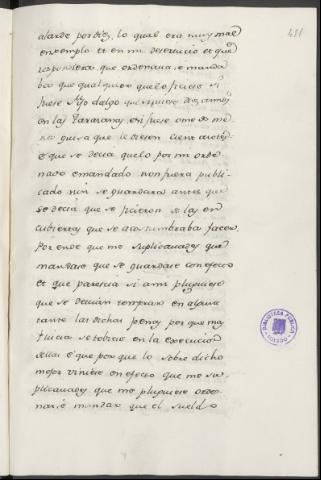 411
alarde por dies, lo qual era muy mal
enxemplo et en mi deservicio et que
respondiera que ordenava e manda
ba que qual quier que lo ficiese si
fuese fijo dalgo que sirviese dos años
en las Tarazanas, et si fuese ome de me
nor guisa que le diesen cient azotes
e que se decia que lo por mi orde
nado e mandado non fuera publi-
cado nin se guardara antes que
se decia que se ficieron e las en
cubiertas que se acostumbraba facer.
Por ende que me suplicavades que
mandase que se guardase con efecto
et que parescia si a mi pluguiese
que se devian temprar en alguna
tante las dichas penas por que mas
se toviese en la execucion
dellas e que por que lo sobre dicho
mejor viniese en efecto que me su
plicavades que me pluguiese orde
nar e mandar que el sueldo
BIBLIOTECA PUBLICA
TOLEDO